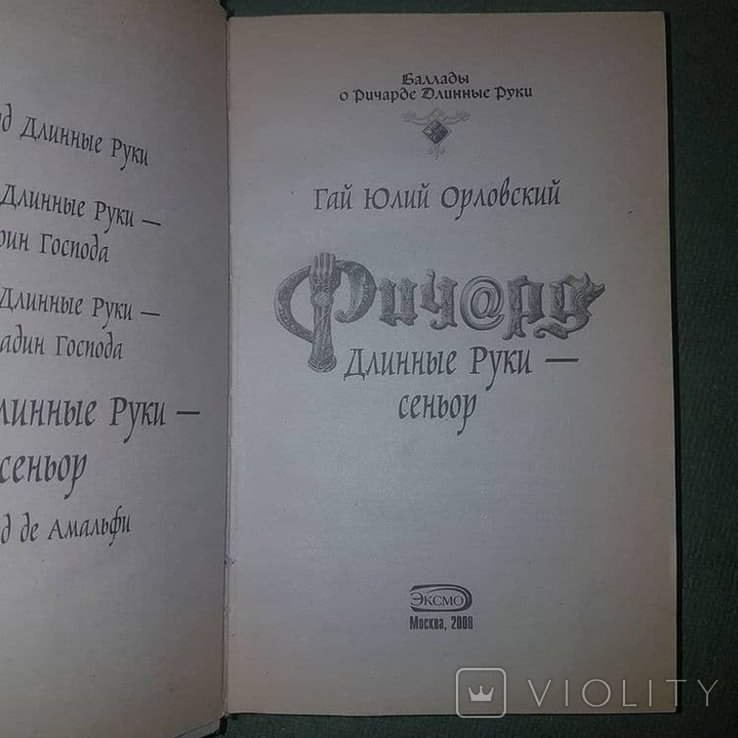 Длинные Руки
Длинные Руки —
Господа
Длинные Руки —
Господа
Руки —
сеньор
де Амальфи
Баллады
о Ричарде Длинные Руки
Гай Юлий Орловский
Рич@рд
Длинные Руки —
сеньор
ЭКСМО
Москва, 2008
VIOLITY